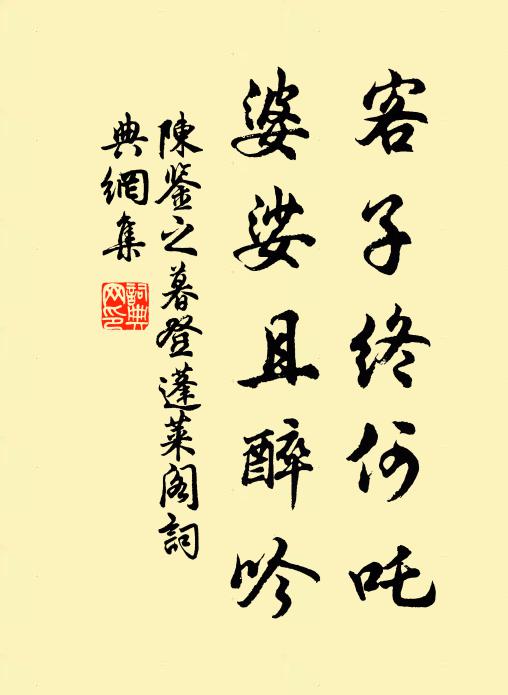 客子終何吒
婆娑且醉吟
陳鑒之暮登蓬萊阁詞
典網集
詞典网印